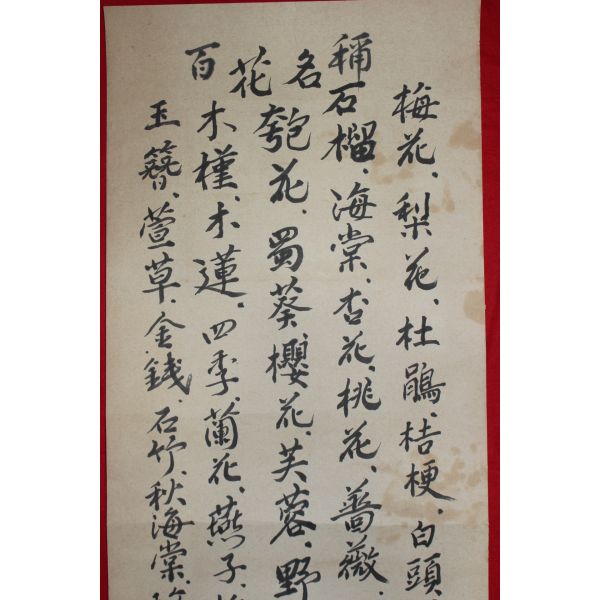 百花名稱
梅花、梨花、杜鵑、桔梗、白頭
石榴、海棠、杏花、桃花、薔薇、
匏花、蜀葵、櫻花、芙蓉、野
木槿、木蓮、四季、蘭花、燕子、
玉簪、萱草、金錢、石竹、秋海棠、